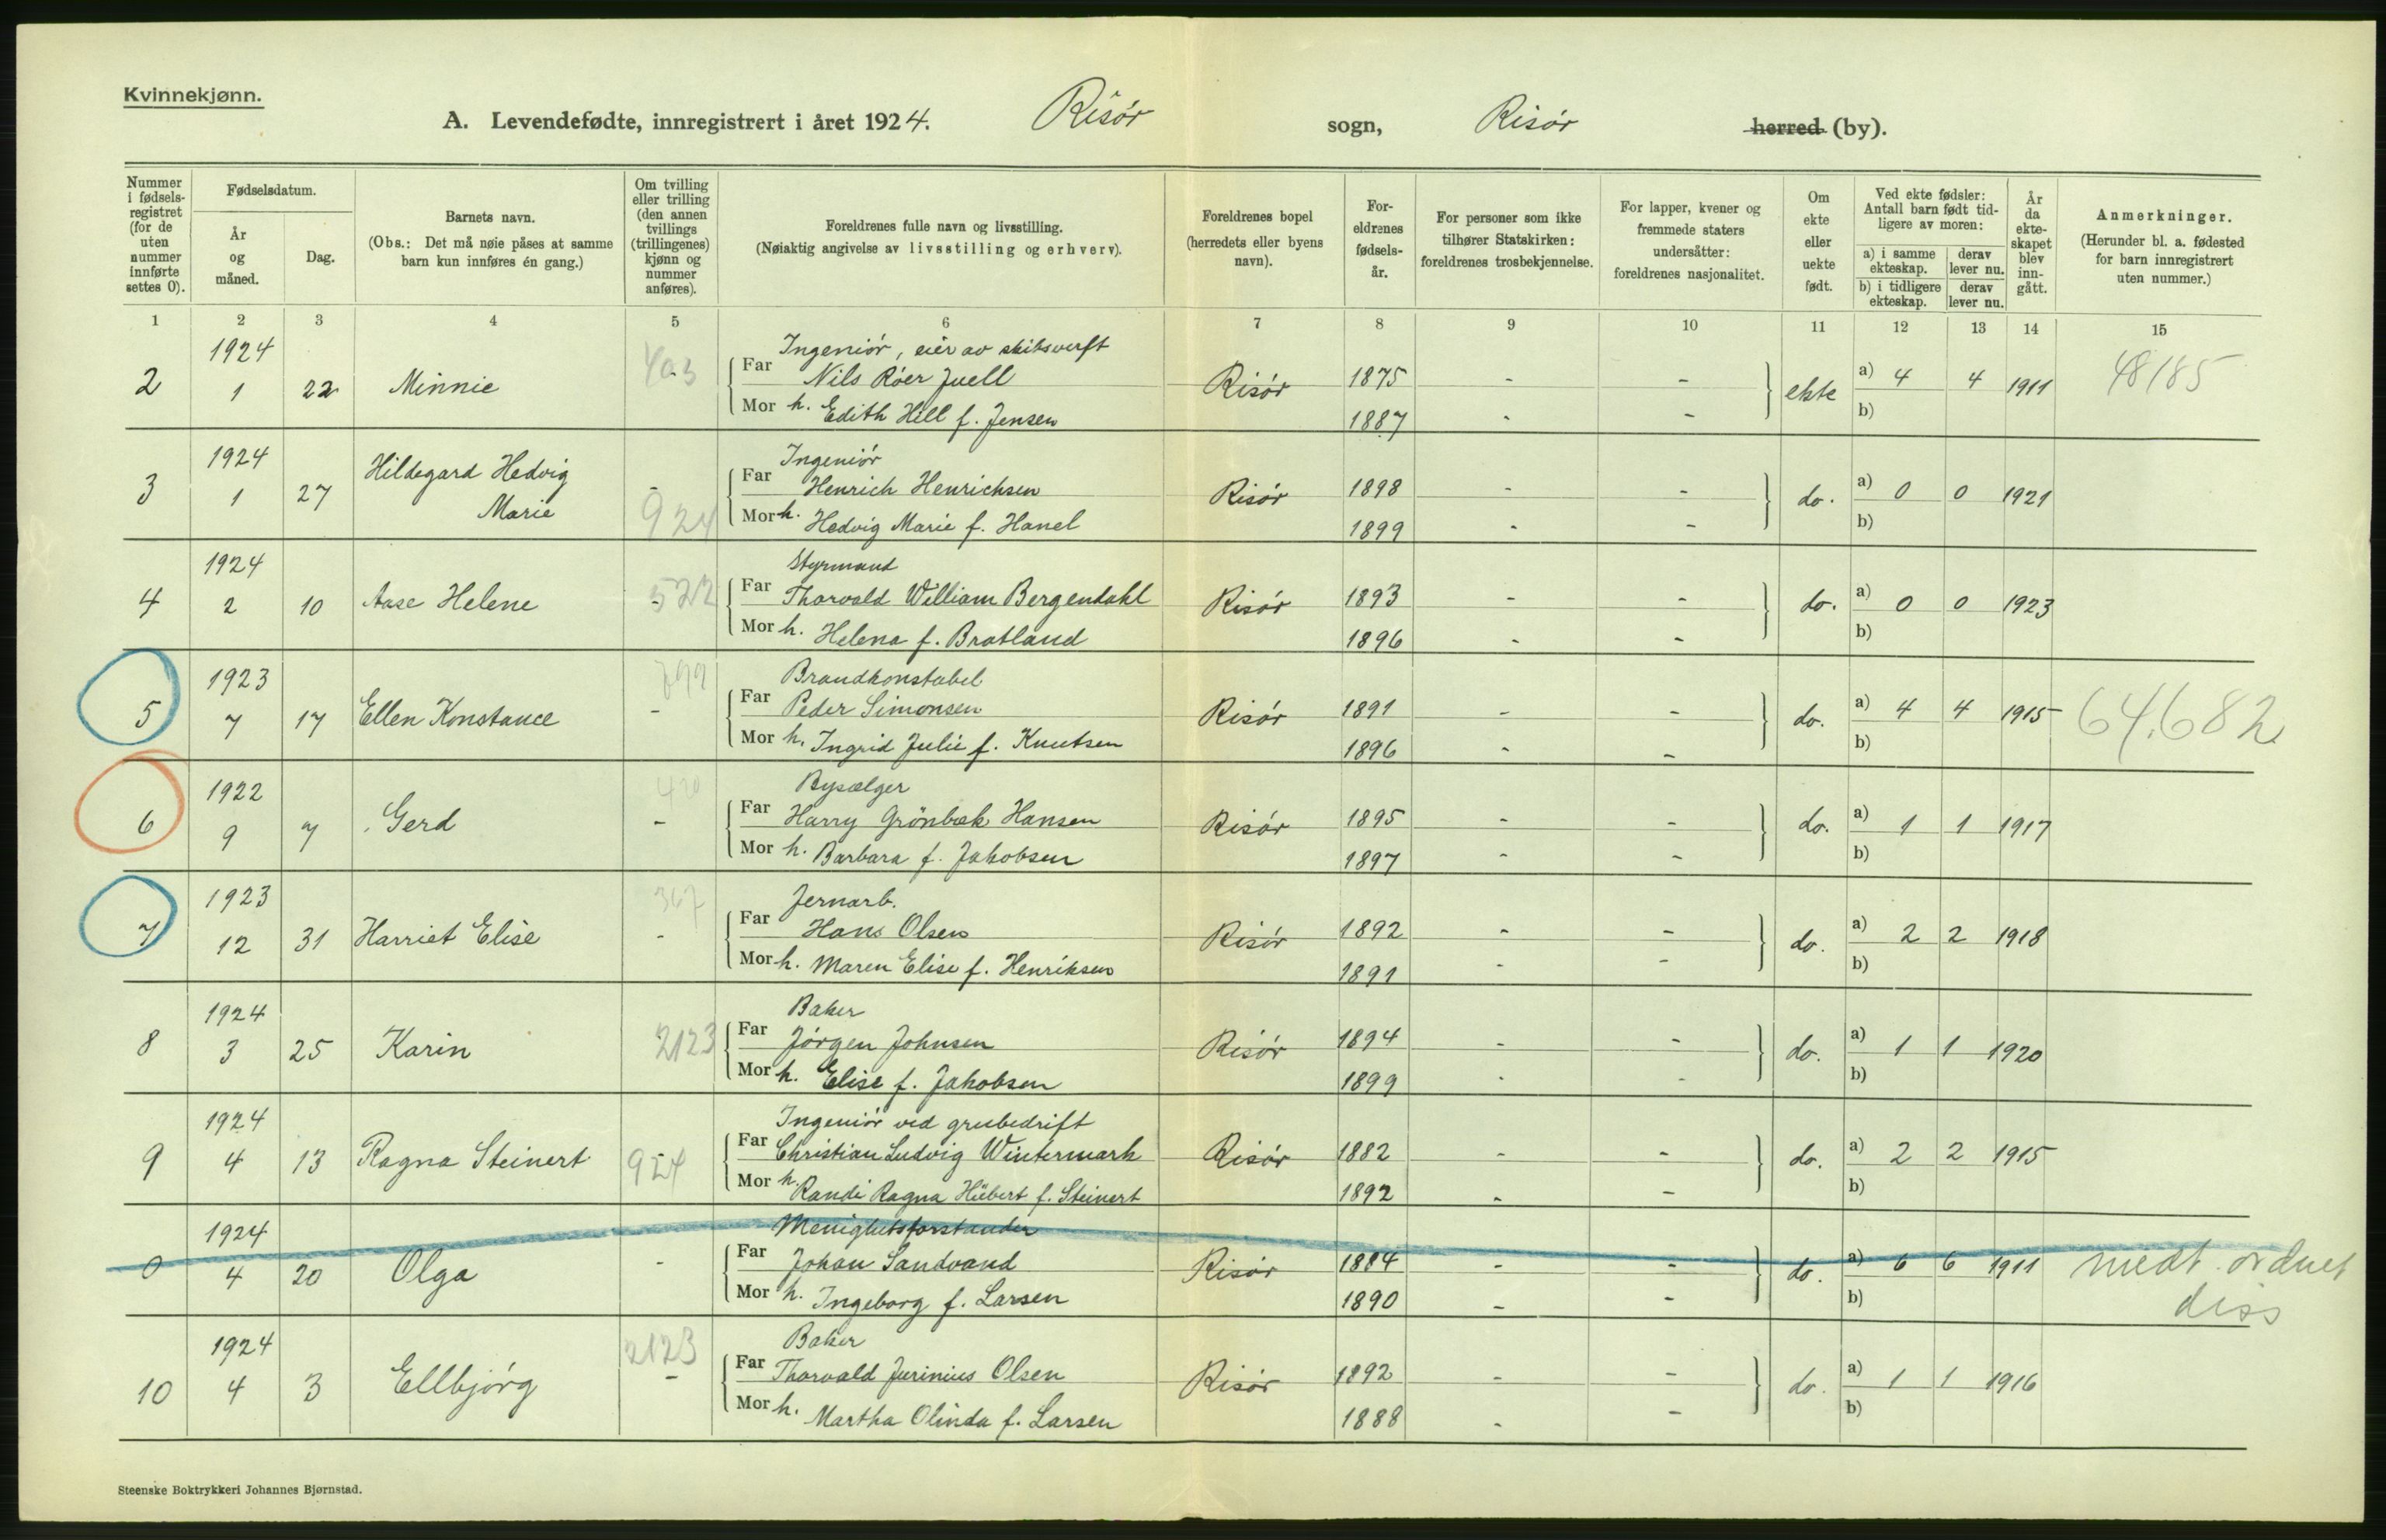 Kvinnekjønn.
A. Levendefødte, innregistrert i året 1924. Risør sogn, Risør herred (by).
Nummer i fødselsregistret (for de uten nummer innførte settes 0).
Fødselsdatum.
År og måned.
Dag.
Barnets navn.
(Obs.: Det må nøie påses at samme barn kun innføres én gang.)
Om tvilling eller trilling (den annen tvillings (trillingenes) kjønn og nummer anføres).
Foreldrenes fulle navn og livsstilling.
(Nøiaktig angivelse av livsstilling og erhverv).
Foreldrenes bopel (herredets eller byens navn).
Foreldrenes fødselsår.
For personer som ikke tilhører Statskirken: foreldrenes trosbekjennelse.
For lapper, kvener og fremmede staters undersåtter: foreldrenes nasjonalitet.
Om ekte eller uekte født.
Ved ekte fødsler: Antall barn født tidligere av moren:
a) i samme ekteskap. derav lever nu.
b) i tidligere ekteskap. derav lever nu.
År da ekteskapet blev inngått.
Anmerkninger.
(Herunder bl. a. fødested for barn innregistrert uten nummer.)
1 2 3 4 5 6 7 8 9 10 11 12 13 14 15
1924 403 Ingeniør, eier av skibsverft
2 1 22 Minnie - Far Nils Röer Juell Risør 1875 - - ekte a) 4 4 1911 48185
Mor h. Edith Hill f. Jensen 1887 - - b)
1924 Hildegard Hedvig Ingeniør
3 1 27 Marie - 924 Far Henrich Henrichsen Risør 1898 - - do. a) 0 0 1921
Mor h. Hedvig Marie f. Hanel 1899 - - b)
1924 Styrmand
4 2 10 Aase Helene - 522 Far Thorvald William Bergendahl Risør 1893 - - do. a) 0 0 1923
Mor h. Helena f. Bratland 1896 - - b)
1923 799 Brandkonstabel
5 7 17 Ellen Konstance - Far Peder Simonsen Risør 1891 - - do. a) 4 4 1915 64.682
Mor h. Ingrid Julie f. Knutsen 1896 - - b)
1922 Bysælger
6 9 7 Gerd - Far Harry Grönbæk Hansen Risør 1895 - - do. a) 1 1 1917
Mor h. Barbara f. Jakobsen 1897 - - b)
1923 367 Jernarb.
7 12 31 Harriet Elise - Far Hans Olsen Risør 1892 - - do. a) 2 2 1918
Mor h. Maren Elise f. Henriksen 1891 - - b)
1924 Baker
8 3 25 Karin 2123 Far Jørgen Johnsen Risør 1894 - - do. a) 1 1 1920
Mor h. Elise f. Jakobsen 1899 - - b)
1924 Ingeniør ved grubedrift
9 4 13 Ragna Steinert 924 Far Christian Ludvig Wintermark Risør 1882 - - do. a) 2 2 1915
Mor h. Randi Ragna Hübert f. Steinert 1892 - - b)
1924 Menighetsforstander
0 4 20 Olga - Far Johan Sandvand Risør 1884 - - do. a) 6 6 1911 medt. ordnet
Mor h. Ingeborg f. Larsen 1890 - - b) diss
1924 2123 Baker
10 4 3 Ellbjørg - Far Thorvald Jurinius Olsen Risør 1892 - - do. a) 1 1 1916
Mor h. Martha Olinda f. Larsen 1888 - - b)
Steenske Boktrykkeri Johannes Bjørnstad.